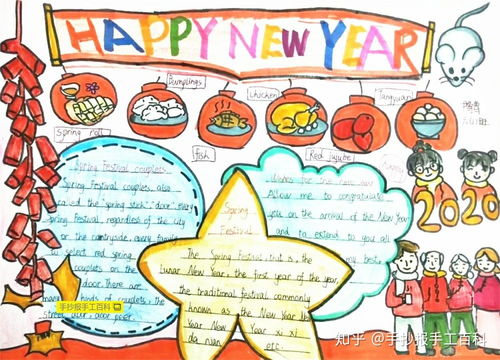 HAPPY NEW YEAR
Dumplings
Chicken
Tangyuan
Spring roll
fish
Red jujube
2020
Spring Festival couplets
Spring Festival couplets also
called the "spring stick", door. Every
Spring Festival, regardless of the city
or the countryside, every family
to select red spring
couplets on the
door. There are
many kinds of couplets, the
street door, door
Wishes for the new year
Allow me to congratulate
you on the arrival of the New Year
and to extend to you all
my best
Spring
Festival
The Spring Festival, that is, the
lunar New Year, the first year of the year,
the traditional festival commonly
known as the New Year
Year New Year xi xi
da nian, etc.
手抄报手工百科
知乎 @手抄报手工百科